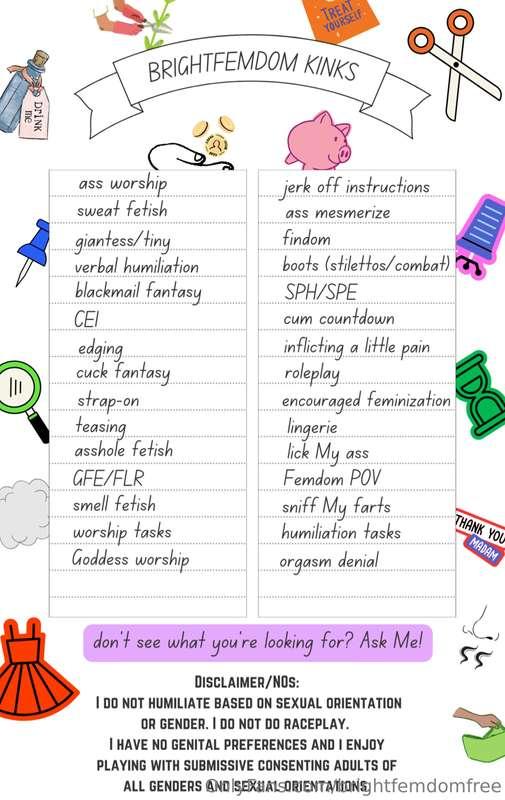 TREAT
YOURSELF
BRIGHTFEMDOM KINKS
DRINK
me
ass worship
sweat fetish
giantess/tiny
verbal humiliation
blackmail fantasy
CEI
edging
cuck fantasy
strap-on
teasing
asshole fetish
GFE/FLR
smell fetish
worship tasks
Goddess worship
jerk off instructions
ass mesmerize
findom
boots (stilettos/combat)
SPH/SPE
cum countdown
inflicting a little pain
roleplay
encouraged feminization
lingerie
lick My ass
Femdom POV
sniff My farts
humiliation tasks
orgasm denial
THANK YOU
MADAM
don't see what you're looking for? Ask Me!
DISCLAIMER/NOS:
I DO NOT HUMILIATE BASED ON SEXUAL ORIENTATION
OR GENDER. I DO NOT DO RACEPLAY.
I HAVE NO GENITAL PREFERENCES AND I ENJOY
PLAYING WITH SUBMISSIVE CONSENTING ADULTS OF
ALL GENDERS AND SEXUAL ORIENTATIONS
OnlyFans.com/brightfemdomfree